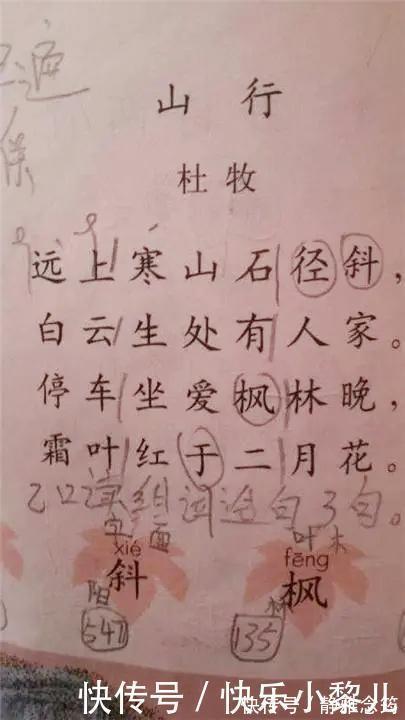 山行
杜牧
远上寒山石径斜，
白云生处有人家。
停车坐爱枫林晚，
霜叶红于二月花。
口读组词造句3句。
叶 木
xié fēng
斜 枫
541 135
快传号 / 快乐小黎儿
快传号 / 静雅念筠